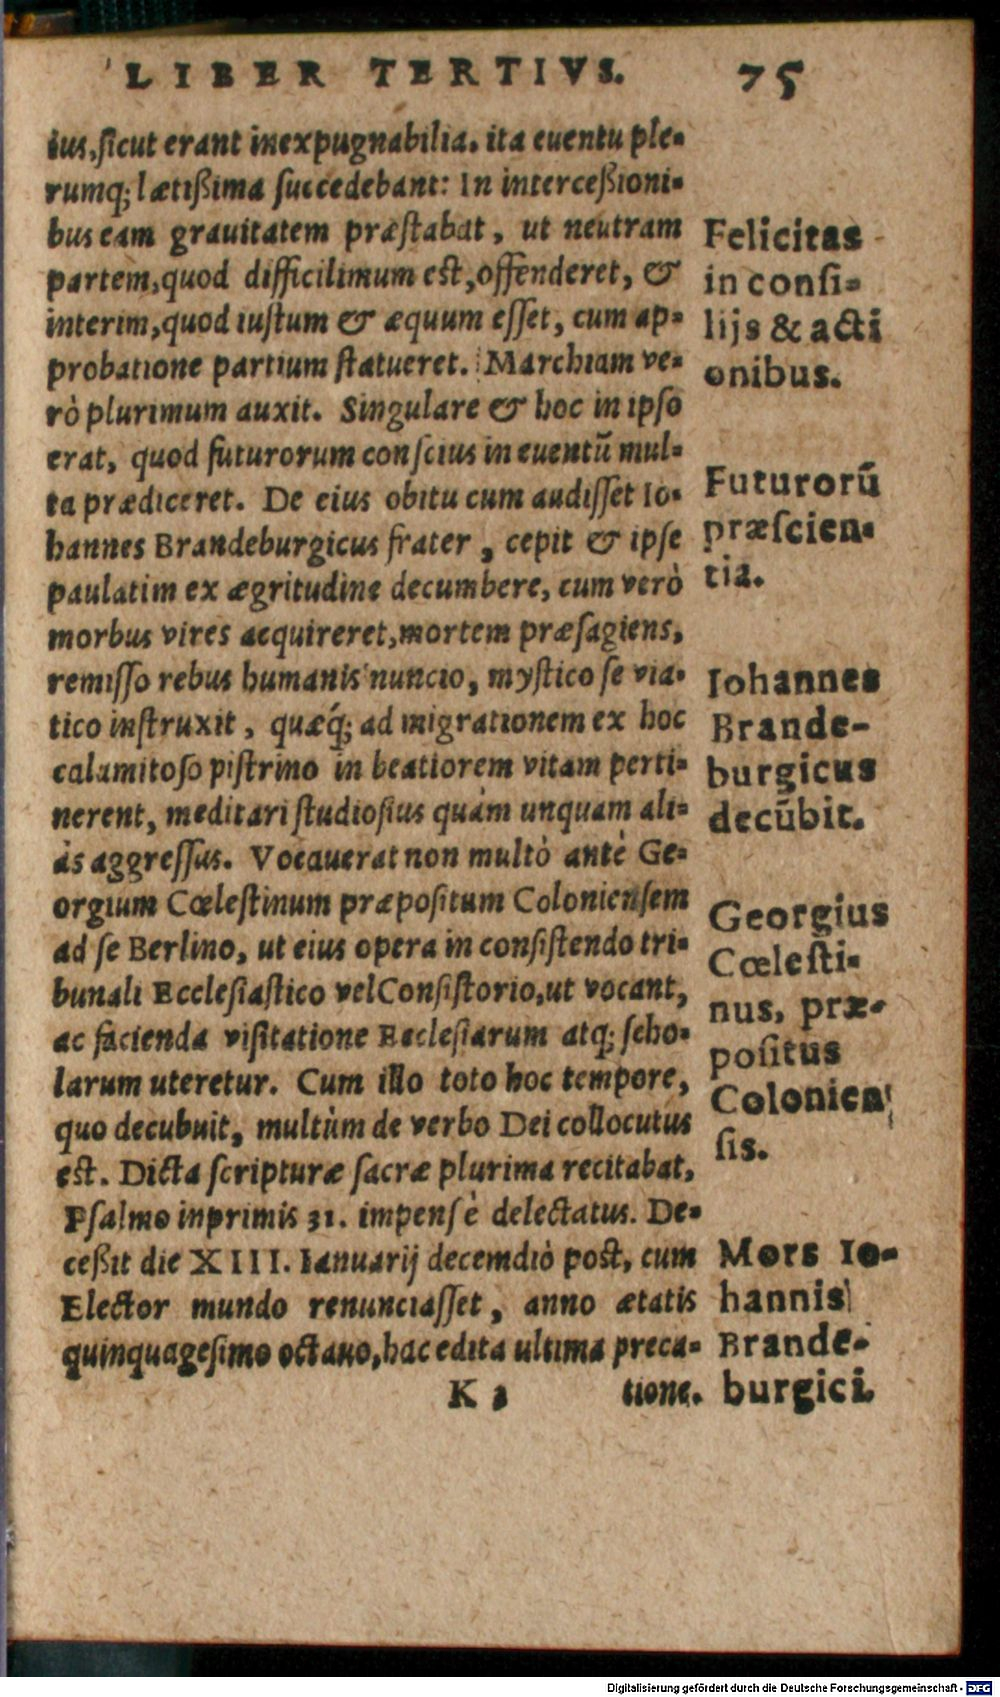 LIBER TERTIVS. 75
ius, ſicut erant inexpugnabilia, ita euentu ple-
rumq; lætißima ſuccedebant: In interceßioni-
bus eam grauitatem præſtabat, ut neutram
partem, quod difficilimum eſt, offenderet, &
interim, quod iuſtum & æquum eſſet, cum ap-
probatione partium ſtatueret. Marchiam ve-
rò plurimum auxit. Singulare & hoc in ipſo
erat, quod futurorum conſcius in euentũ mul-
ta prædiceret. De eius obitu cum audiſſet Io-
hannes Brandeburgicus frater, cepit & ipſe
paulatim ex ægritudine decumbere, cum verò
morbus vires acquireret, mortem præſagiens,
remiſſo rebus humanis nuncio, myſtico ſe via-
tico inſtruxit, quæq́; ad migrationem ex hoc
calamitoſo piſtrino in beatiorem vitam perti-
nerent, meditari ſtudioſius quàm unquam ali-
às aggreſſus. Vocauerat non multò antè Ge-
orgium Cœleſtinum præpoſitum Colonienſem
ad ſe Berlino, ut eius opera in conſiſtendo tri-
bunali Eccleſiaſtico vel Conſiſtorio, ut vocant,
ac facienda viſitatione Eccleſiarum atq; ſcho-
larum uteretur. Cum illo toto hoc tempore,
quo decubuit, multùm de verbo Dei collocutus
eſt. Dicta ſcripturæ ſacræ plurima recitabat,
Pſalmo inprimis 31. impensè delectatus. De-
ceßit die XIII. Ianuarij decemdiò poſt, cum
Elector mundo renunciaſſet, anno ætatis
quinquageſimo octauo, hac edita ultima preca-
K 3 tione.
Felicitas
in conſi-
lijs & acti
onibus.
Futurorũ
præſcien-
tia.
Iohannes
Brande-
burgicus
decũbit.
Georgius
Cœleſti-
nus, præ-
poſitus
Colonien
ſis.
Mors Io-
hannis
Brande-
burgici.
Digitalisierung gefördert durch die Deutsche Forschungsgemeinschaft - DFG